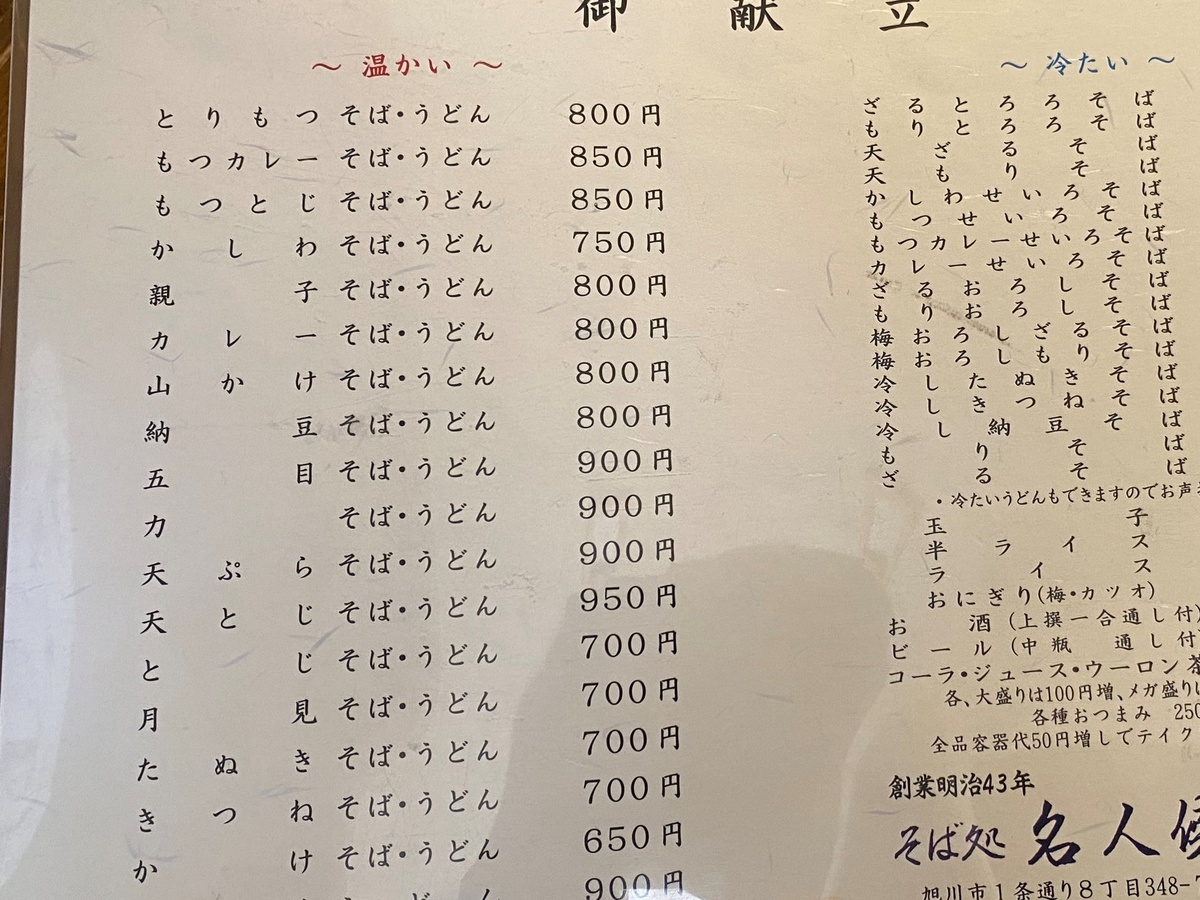 御献立
～ 温かい ～
とりもつそば・うどん 800円
もつカレーそば・うどん 850円
もつとじそば・うどん 850円
かしわそば・うどん 750円
親子そば・うどん 800円
カレーそば・うどん 800円
山かけそば・うどん 800円
納豆そば・うどん 800円
五目そば・うどん 900円
力そば・うどん 900円
天ぷらそば・うどん 900円
天とじそば・うどん 950円
とじそば・うどん 700円
月見そば・うどん 700円
たぬきそば・うどん 700円
きつねそば・うどん 700円
かけそば・うどん 650円
どん 900円
～ 冷たい ～
ざるとろろそば
もりとろろそば
天ざるそば
天もりそば
かしわせいろそば
もつせいろそば
もつカレーせいろそば
カレーせいろそば
ざるおろしそば
もりおろしそば
梅おろしざるそば
梅おろしもりそば
冷したぬきそば
冷しきつねそば
冷し納豆そば
もりそば
ざるそば
・冷たいうどんもできますのでお声
玉子
半ライス
ライス
おにぎり(梅・カツオ)
お酒(上撰一合通し付)
ビール(中瓶 通し付
コーラ・ジュース・ウーロン茶
各、大盛りは100円増、メガ盛りは
各種おつまみ 250
全品容器代50円増しでテイク
創業明治43年
そば処 名人
旭川市1条通り8丁目348-